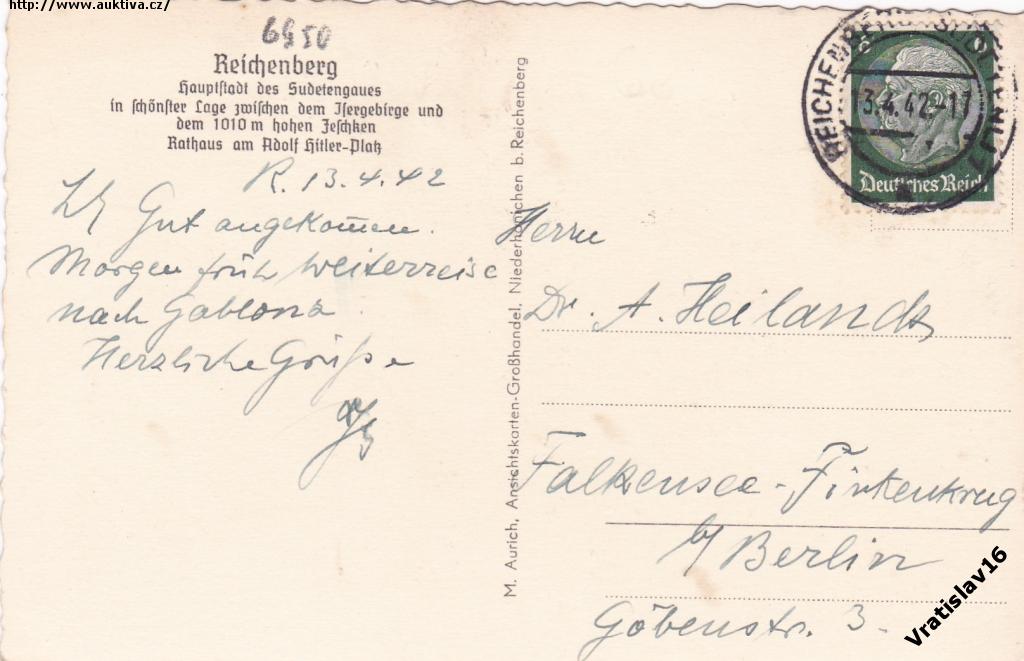 http://www.auktiva.cz/
6950
Reichenberg
Hauptstadt des Sudetengaues
in schönster Lage zwischen dem Isergebirge und
dem 1010 m hohen Jeschken
Rathaus am Adolf Hitler-Platz
R. 13.4.42
Gut angekommen.
Morgen früh Weiterreise
nach Gablonz.
Herzliche Grüße
M. Aurich, Ansichtskarten-Großhandel, Niederhanichen b. Reichenberg
REICHENBERG
13.4.42-17
Deutsches Reich
Herrn
Dr. A. Heilandt
Falkensee-Finkenkrug
b/ Berlin
Göbenstr. 3.
Vratislav16